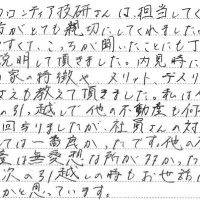 フロンティア技研さんは、担当してく
がとても親切にしてくれました
すくて、こっちが聞いたことにも丁
説明して頂きました。内見時に
家の特徴や、メリット、デメリ
も教えて頂きました。私は
の引っ越しで他の不動産も何
回りましたが、社員さんの対
ては一番良かったです。他の
は無愛想な所が多かった
次の引っ越しの時もお世話に
かと思っています。